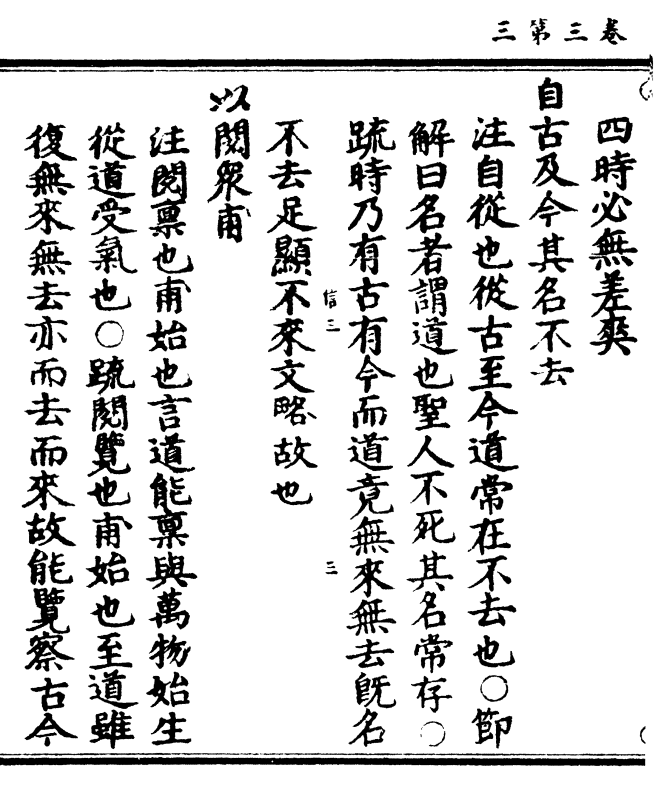 卷三第三
四時必無差爽
自古及今其名不去
注自從也從古至今道常在不去也○節
解曰名者謂道也聖人不死其名常存○
䟽時乃有古有今而道竟無來無去旣名
信三
三
不去足顯不來文略故也
以閱衆甫
注閱禀也甫始也言道能禀與萬物始生
從道受氣也○䟽閱覽也甫始也至道雖
復無來無去亦而去而來故能覽察古今